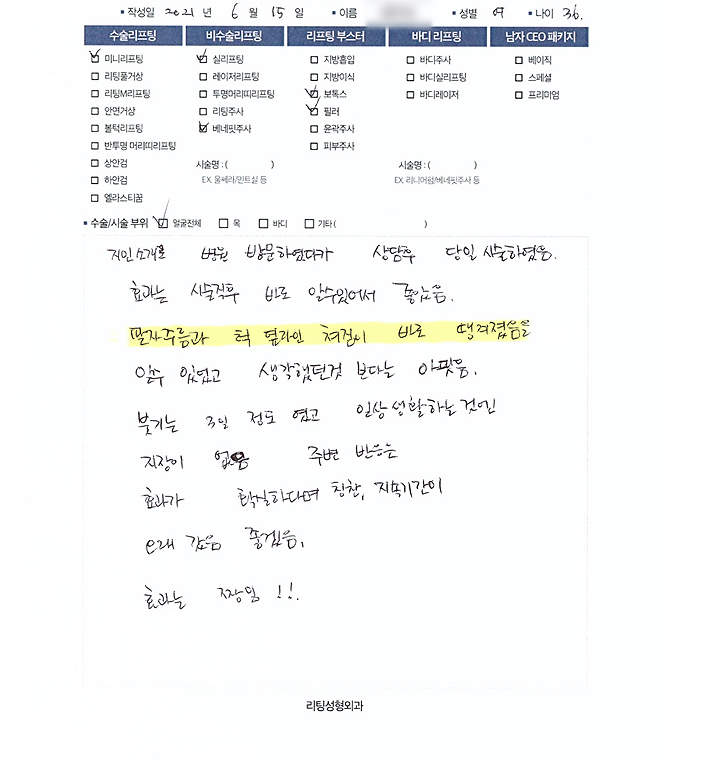 ▪ 작성일 2021 년 6 월 15 일 ▪ 이름 ▪ 성별 여 ▪ 나이 36.
수술리프팅 비수술리프팅 리프팅 부스터 바디 리프팅 남자 CEO 패키지
미니리프팅 실리프팅 지방흡입 바디주사 베이직
리팅풀거상 레이저리프팅 지방이식 바디실리프팅 스페셜
리팅M리프팅 투명머리띠리프팅 보톡스 바디레이저 프리미엄
안면거상 리팅주사 필러
볼턱리프팅 베네핏주사 윤곽주사
반투명 머리띠리프팅 피부주사
상안검 시술명 : ( ) 시술명 : ( )
하안검 EX. 울쎄라/민트실 등 EX. 리니어펌/베네핏주사 등
엘라스티꿈
▪ 수술/시술 부위 얼굴전체 목 바디 기타 ( )
지인소개로 병원 방문하였다가 상담후 당일 시술하였음.
효과는 시술직후 바로 알수있어서 좋았음.
팔자주름과 턱 옆라인 쳐짐이 바로 땡겨졌음을
알수 있었고 생각했던것 보다는 아팟음.
붓기는 3일 정도 였고 일상생활하는것엔
지장이 없음 주변 반응는
효과가 확실하다며 칭찬, 지속기간이
오래 갔음 좋겠음,
효과는 짱임 !!.
리팅성형외과